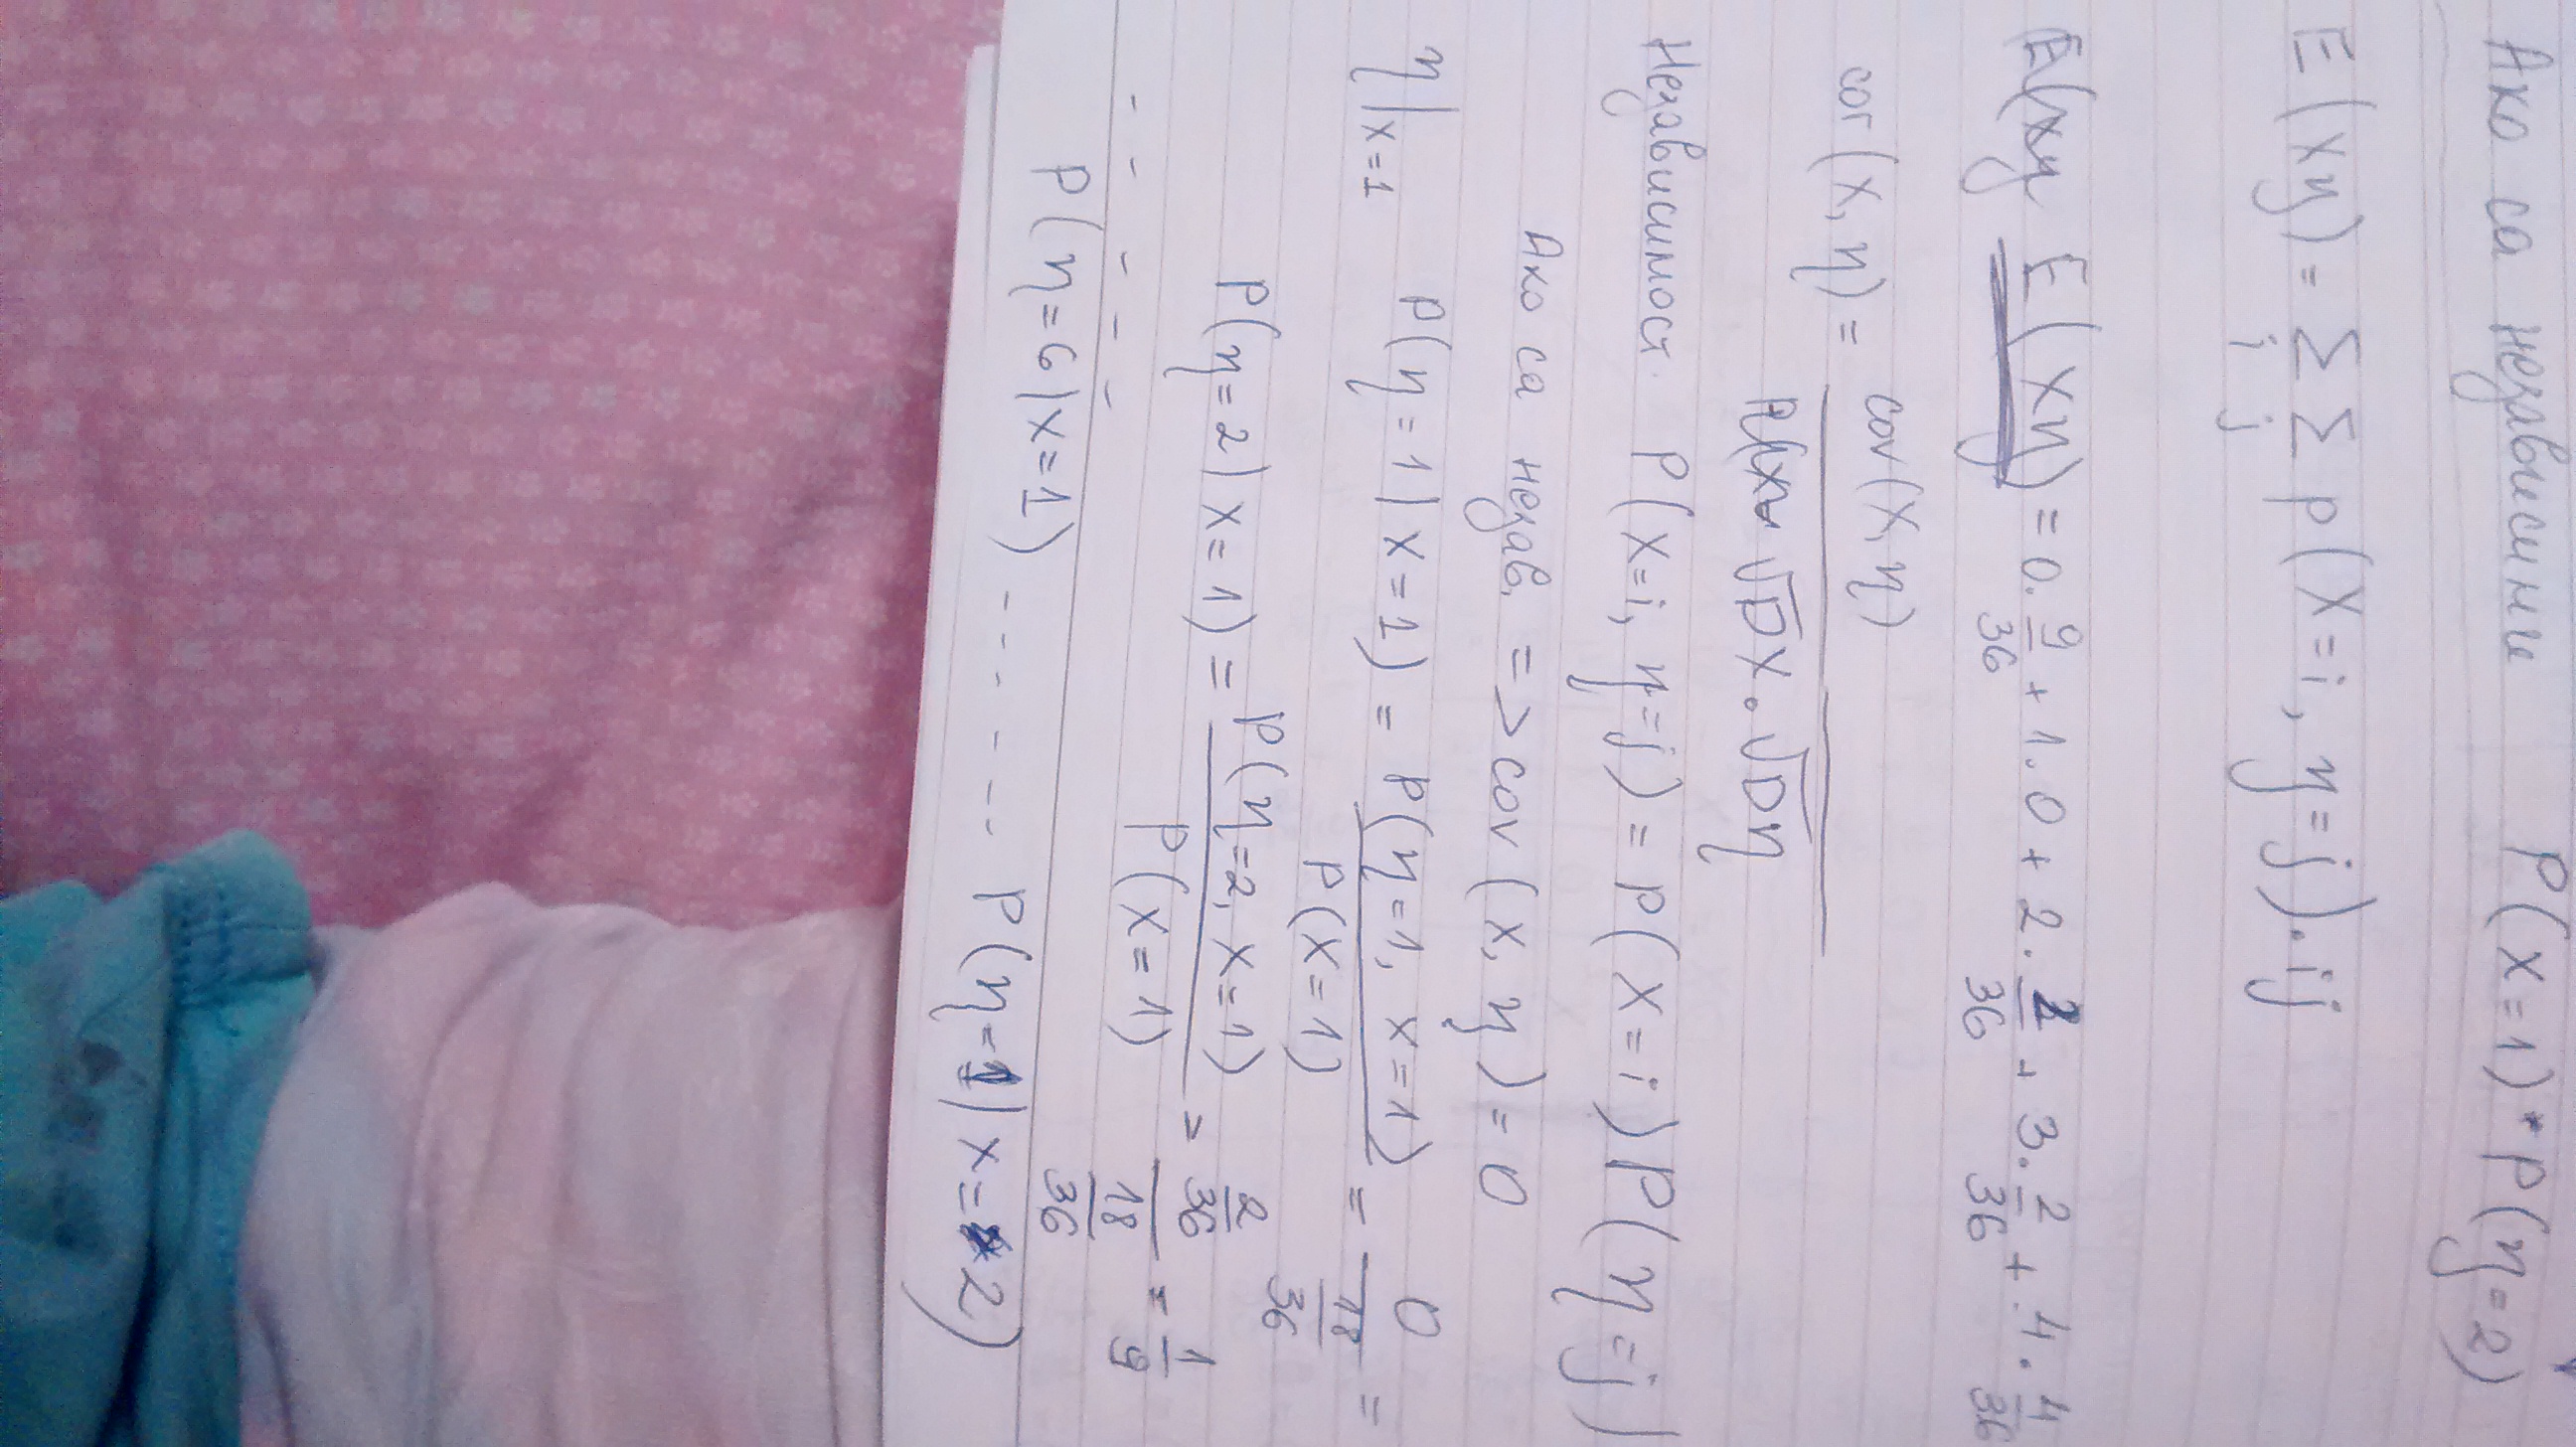 Ако са независими P(X=1)*P(η=2)
E(Xη) = Σ Σ P(X=i, η=j).ij
i j
E(Xη) = 0.9/36 + 1.0 + 2.2/36 + 3.2/36 + 4.4/36
cor(X, η) = cov(X, η)
√DX.√Dη
Независимост. P(X=i, η=j) = P(X=i)P(η=j)
Ако са незав. => cov(X, η) = 0
η|X=1 P(η=1|X=1) = P(η=1, X=1)/P(X=1) = 0/(18/36) =
P(η=2|X=1) = P(η=2, X=1)/P(X=1) = (2/36)/(18/36) = 1/9
- - - - - -
P(η=6|X=1) - - - - - - P(η=1|X=2)